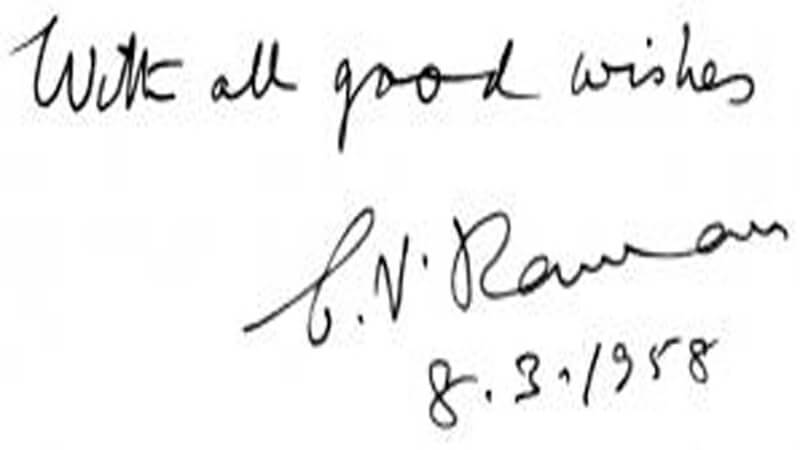 With all good wishes
C.V. Raman
8.3.1958